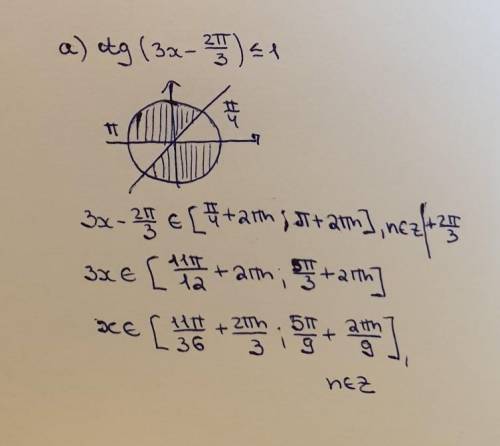 а) ctg (3x - 2π/3) ≤ 1
π π/4
3x - 2π/3 ∈ [π/4 + 2πn ; π + 2πn], n∈z | + 2π/3
3x ∈ [11π/12 + 2πn ; 5π/3 + 2πn]
x ∈ [11π/36 + 2πn/3 ; 5π/9 + 2πn/9],
n∈z